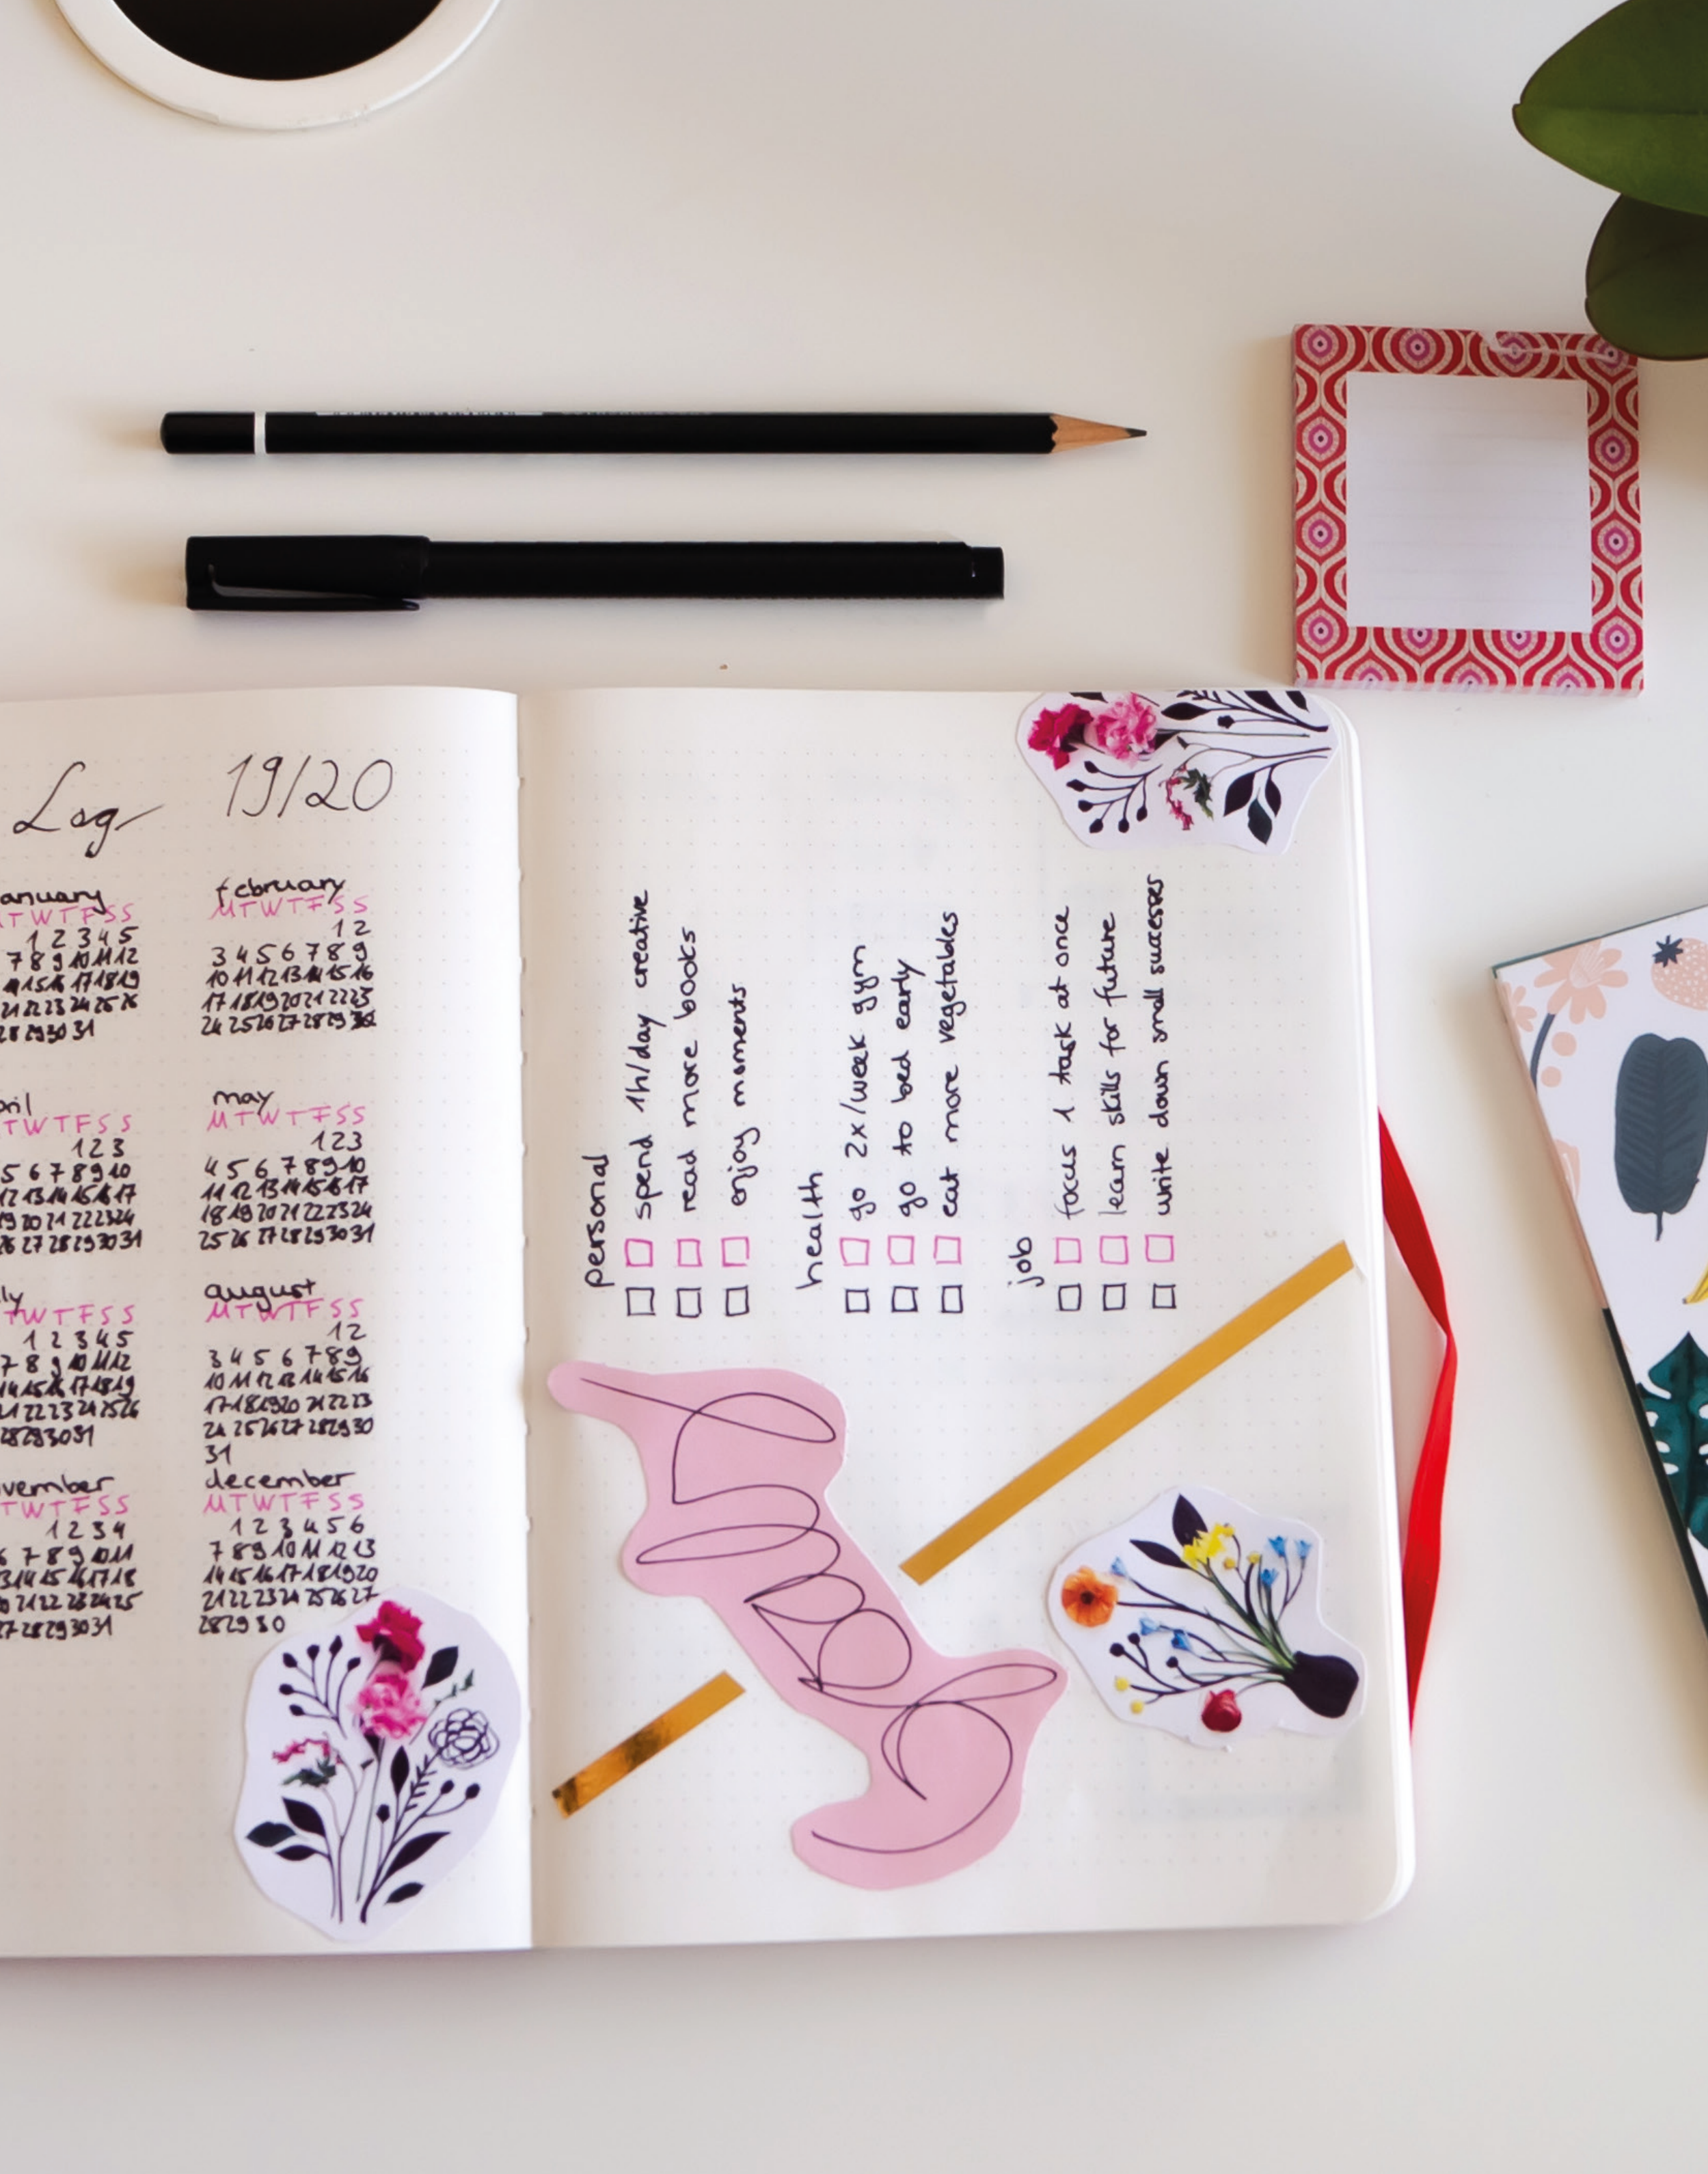 Log 19/20
anuary
T W T F S S
1 2 3 4 5
7 8 9 10 11 12
14 15 16 17 18 19
21 22 23 24 25 26
28 29 30 31
february
M T W T F S S
1 2
3 4 5 6 7 8 9
10 11 12 13 14 15 16
17 18 19 20 21 22 23
24 25 26 27 28 29
pril
T W T F S S
1 2 3
5 6 7 8 9 10
12 13 14 15 16 17
19 20 21 22 23 24
26 27 28 29 30 31
may
M T W T F S S
1 2 3
4 5 6 7 8 9 10
11 12 13 14 15 16 17
18 19 20 21 22 23 24
25 26 27 28 29 30 31
ly
T W T F S S
1 2 3 4 5
7 8 9 10 11 12
14 15 16 17 18 19
21 22 23 24 25 26
28 29 30 31
august
M T W T F S S
1 2
3 4 5 6 7 8 9
10 11 12 13 14 15 16
17 18 19 20 21 22 23
24 25 26 27 28 29 30
31
vember
T W T F S S
1 2 3 4
6 7 8 9 10 11
13 14 15 16 17 18
20 21 22 23 24 25
27 28 29 30 31
december
M T W T F S S
1 2 3 4 5 6
7 8 9 10 11 12 13
14 15 16 17 18 19 20
21 22 23 24 25 26 27
28 29 30
personal
spend 1h/day creative
read more books
enjoy moments
health
go 2x/week gym
go to bed early
eat more vegetables
job
focus 1 task at once
learn skills for future
write down small successes